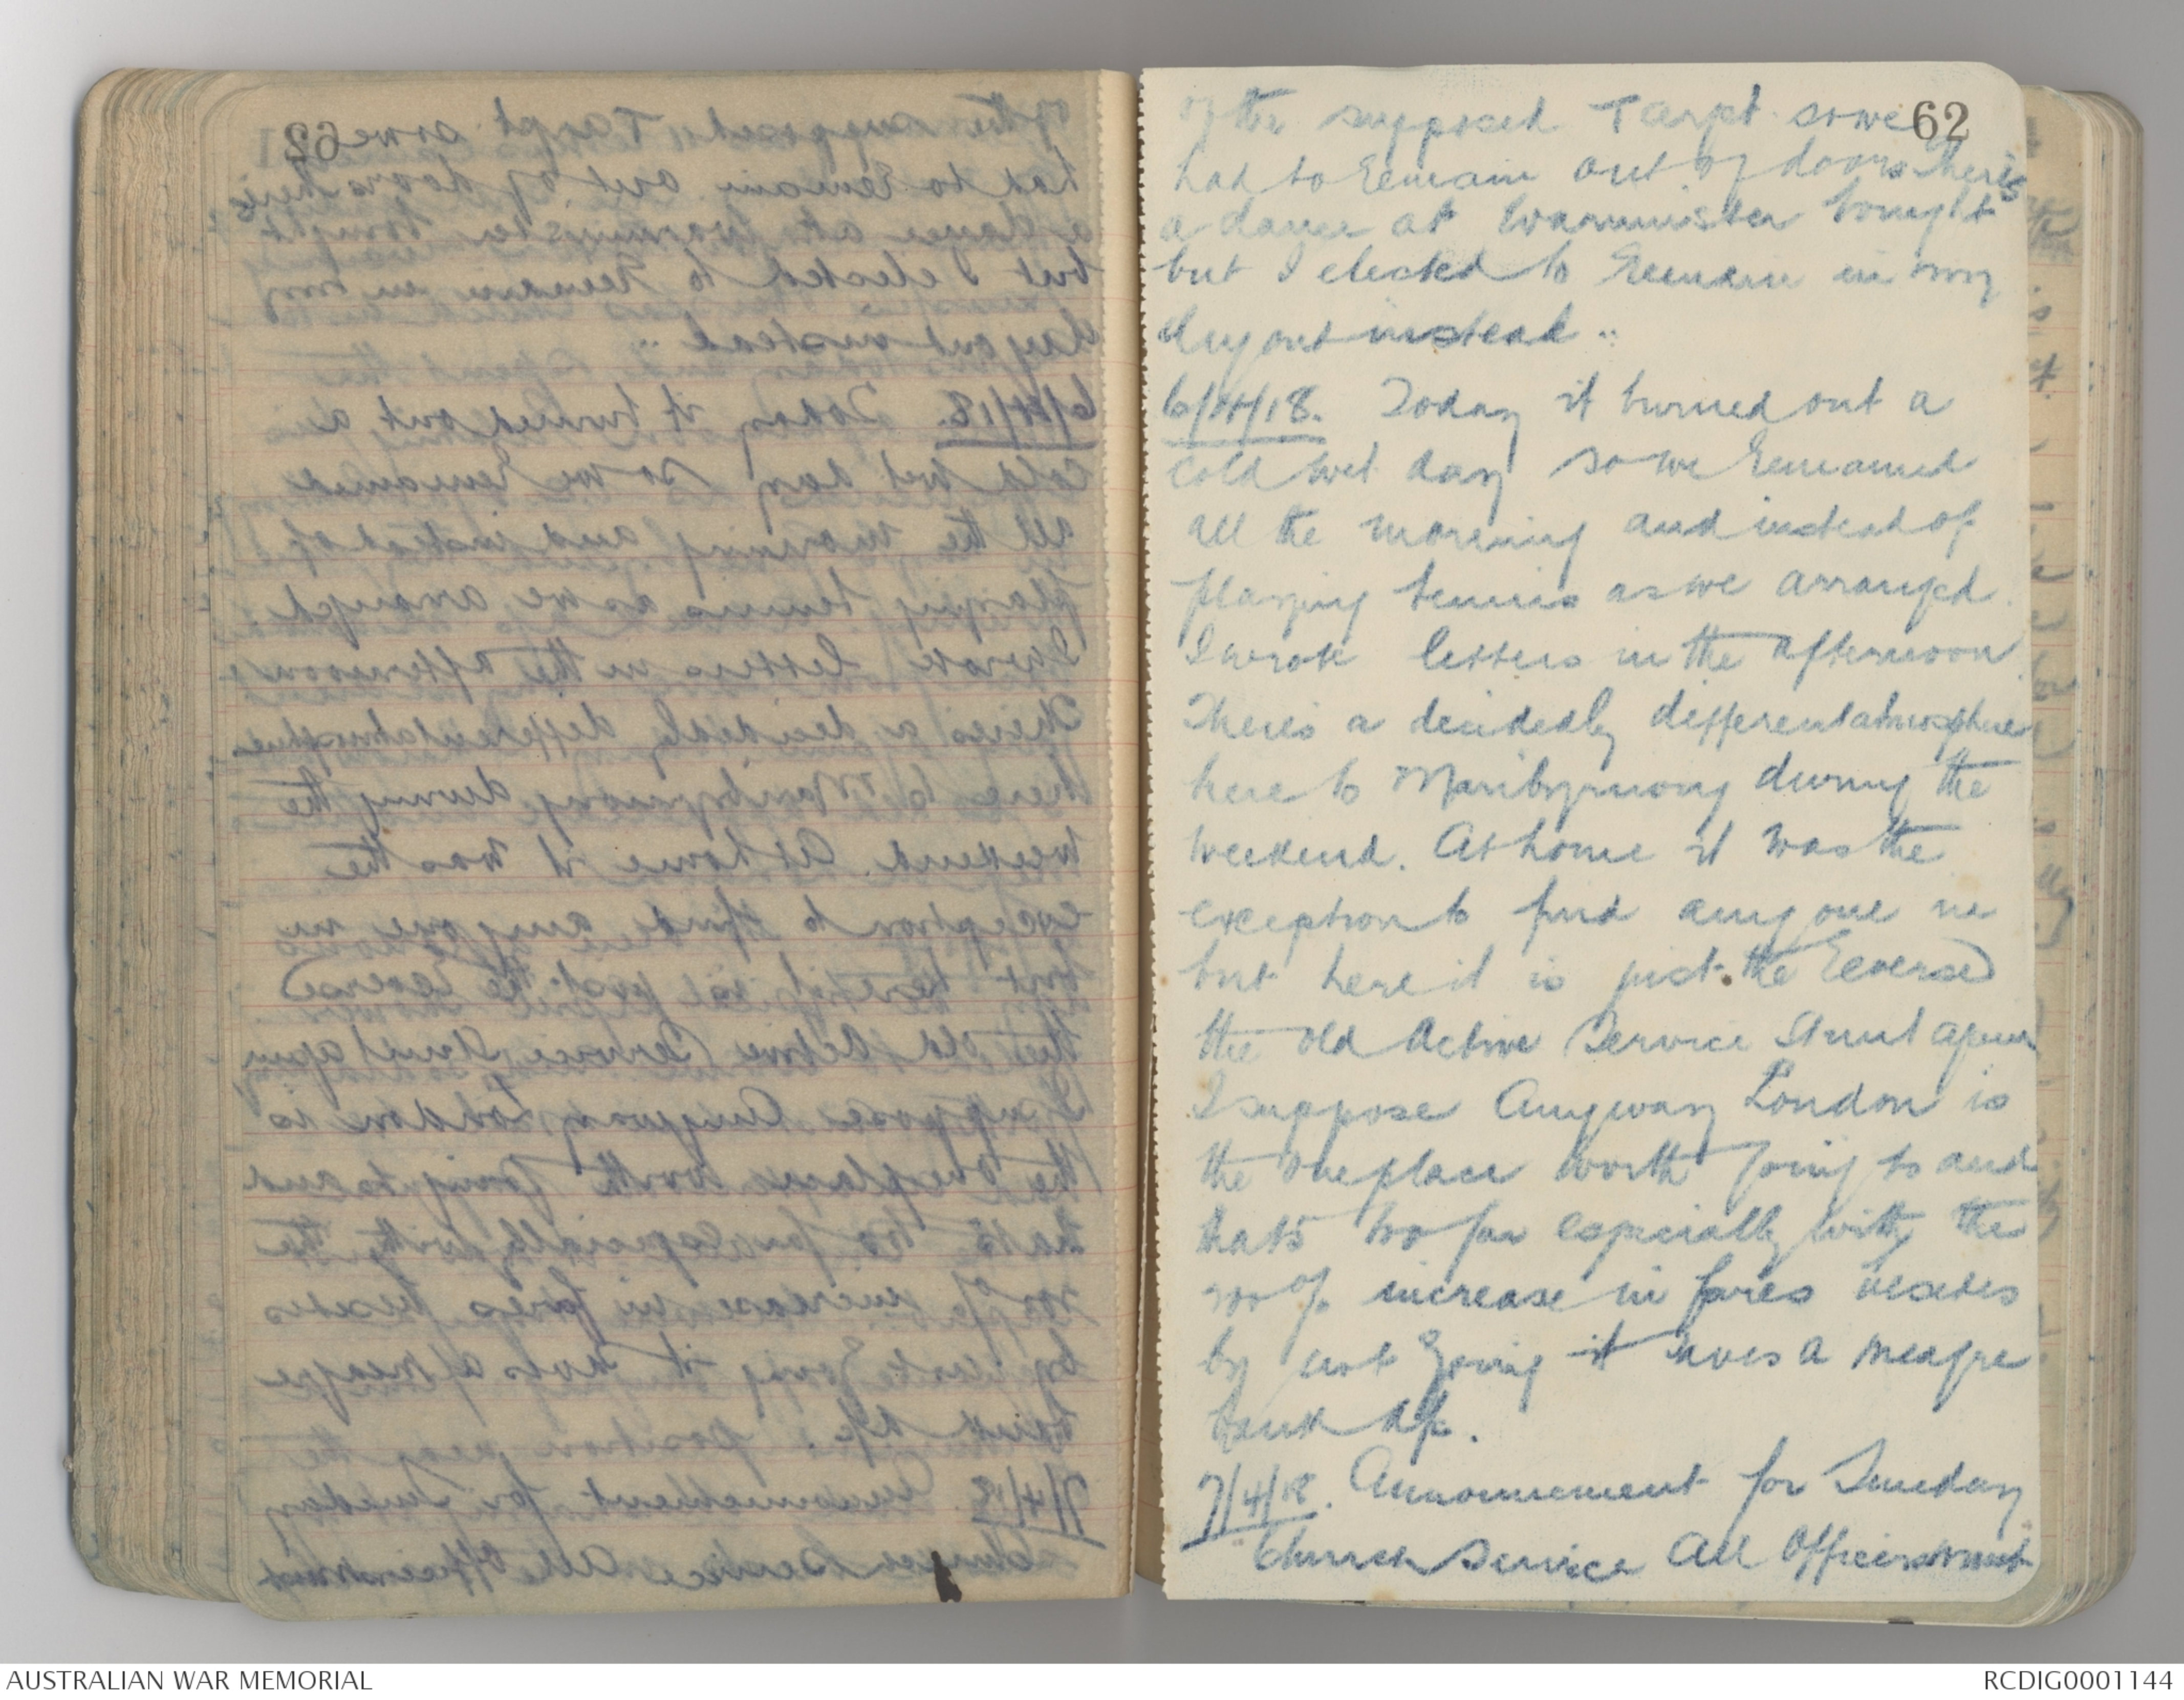 62
of the supposed Target so we
had to remain out of doors There's
a dance at Warminster tonight
but I elected to remain in my
dug out instead ..
6/4/18. Today it turned out a
cold wet day so we remained
all the morning and instead of
playing tennis as we arranged
I wrote letters in the afternoon
There's a decidedly different atmosphere
here to Maribyrnong during the
weekend. At home it was the
exception to find anyone in
but here it is just the reverse
the old Active Service Stunt again
I suppose Anyway London is
the one place worth going to and
that's too far especially with the
% increase in fares besides
by not going it saves a meagre
bank a/c.
7/4/18. Announcement for Sunday
Church Service All Officers must
AUSTRALIAN WAR MEMORIAL
RCDIG0001144